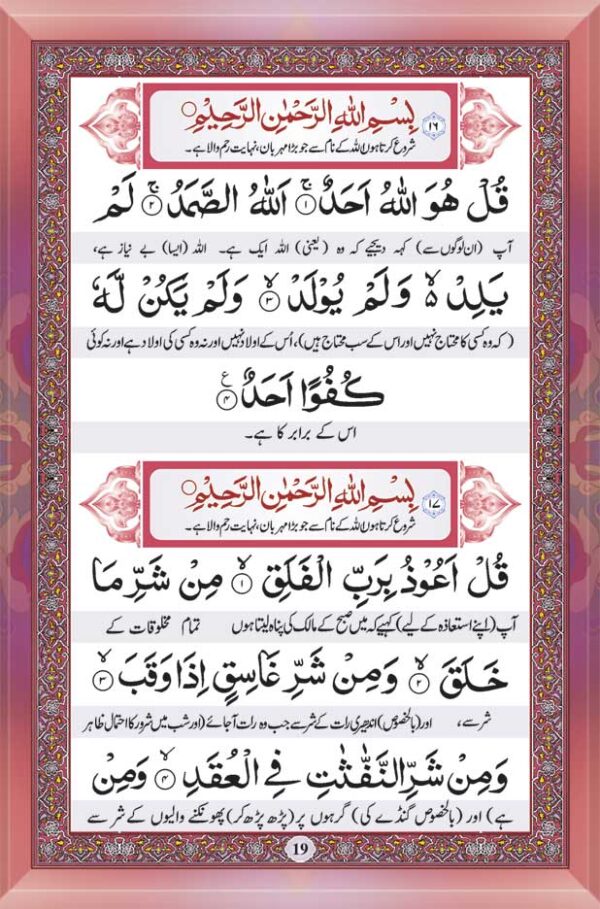 ۱۶ بِسْمِ اللهِ الرَّحْمٰنِ الرَّحِيْمِ
شروع کرتا ہوں اللہ کے نام سے جو بڑا مہربان، نہایت رحم والا ہے۔
قُلْ هُوَ اللهُ اَحَدٌ ۚ﴿۱﴾ اَللهُ الصَّمَدُ ۚ﴿۲﴾ لَمْ
آپ (ان لوگوں سے) کہہ دیجیے کہ وہ (یعنی) اللہ ایک ہے۔ اللہ (ایسا) بے نیاز ہے،
يَلِدْ ۙ وَلَمْ يُوْلَدْ ۙ﴿۳﴾ وَلَمْ يَكُنْ لَّهٗ
(کہ وہ کسی کا محتاج نہیں اور اس کے سب محتاج ہیں)، اُس کے اولاد نہیں اور نہ وہ کسی کی اولاد ہے اور نہ کوئی
كُفُوًا اَحَدٌ ﴿۴﴾ ع
اس کے برابر کا ہے۔
۱۷ بِسْمِ اللهِ الرَّحْمٰنِ الرَّحِيْمِ
شروع کرتا ہوں اللہ کے نام سے جو بڑا مہربان، نہایت رحم والا ہے۔
قُلْ اَعُوْذُ بِرَبِّ الْفَلَقِ ۙ﴿۱﴾ مِنْ شَرِّ مَا
آپ (اپنے استعاذہ کے لیے) کہیے کہ میں صبح کے مالک کی پناہ لیتا ہوں تمام مخلوقات کے
خَلَقَ ۙ﴿۲﴾ وَمِنْ شَرِّ غَاسِقٍ اِذَا وَقَبَ ۙ﴿۳﴾
شر سے، اور (بالخصوص) اندھیری رات کے شر سے جب وہ رات آ جائے (اور شب میں شرور کا احتمال ظاہر
وَمِنْ شَرِّ النَّفّٰثٰتِ فِي الْعُقَدِ ۙ﴿۴﴾ وَمِنْ
ہے) اور (بالخصوص گنڈے کی) گرہوں پر (پڑھ پڑھ کر) پھونکنے والیوں کے شر سے
19